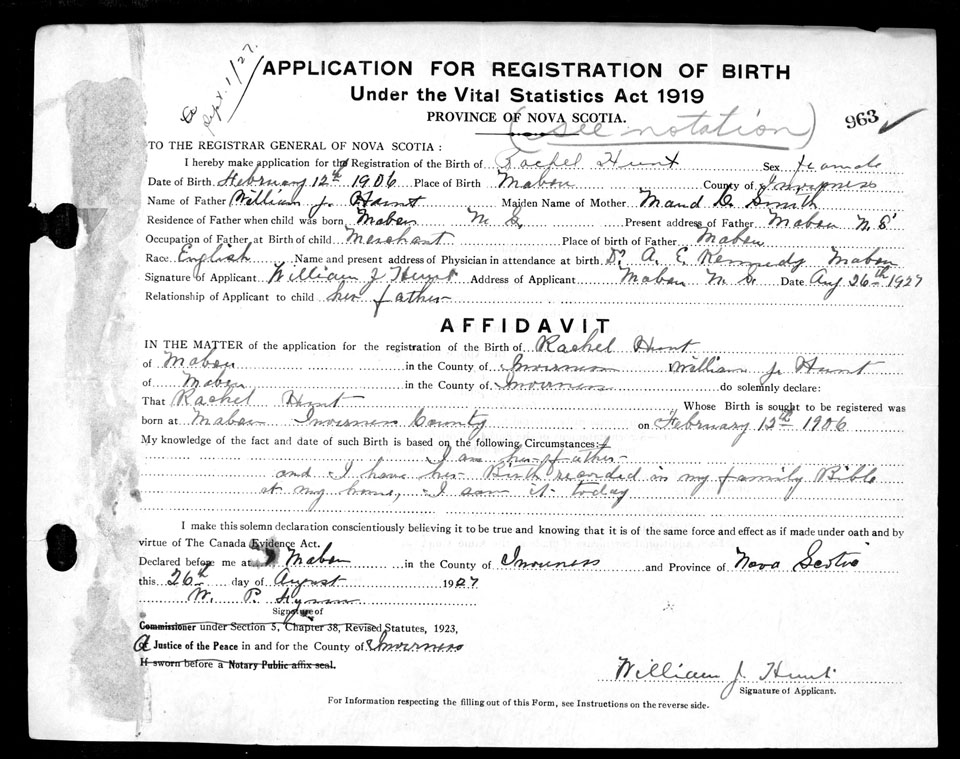 Sept. 1/27.
APPLICATION FOR REGISTRATION OF BIRTH
Under the Vital Statistics Act 1919
PROVINCE OF NOVA SCOTIA.
(see notation)
963 ✓
TO THE REGISTRAR GENERAL OF NOVA SCOTIA :
I hereby make application for the Registration of the Birth of Rachel Hunt Sex female
Date of Birth February 12th 1906 Place of Birth Mabou County of Inverness
Name of Father William J. Hunt Maiden Name of Mother Maud D. Smith
Residence of Father when child was born Mabou N.S. Present address of Father Mabou N.S.
Occupation of Father at Birth of child Merchant Place of birth of Father Mabou
Race English Name and present address of Physician in attendance at birth Dr. A. E. Kennedy Mabou
Signature of Applicant William J Hunt Address of Applicant Mabou N.S. Date Aug 26th 1927
Relationship of Applicant to child her father
AFFIDAVIT
IN THE MATTER of the application for the registration of the Birth of Rachel Hunt
of Mabou in the County of Inverness I William J. Hunt
of Mabou in the County of Inverness do solemnly declare:
That Rachel Hunt Whose Birth is sought to be registered was
born at Mabou Inverness County on February 12th 1906
My knowledge of the fact and date of such Birth is based on the following Circumstances:
I am her father
and I have her Birth recorded in my family Bible
at my home, I saw it today
I make this solemn declaration conscientiously believing it to be true and knowing that it is of the same force and effect as if made under oath and by
virtue of The Canada Evidence Act.
Declared before me at Mabou in the County of Inverness and Province of Nova Scotia
this 26th day of August 1927
W. P.
Signature of
Commissioner under Section 5, Chapter 38, Revised Statutes, 1923,
A Justice of the Peace in and for the County of Inverness
If sworn before a Notary Public affix seal.
William J. Hunt
Signature of Applicant.
For Information respecting the filling out of this Form, see Instructions on the reverse side.